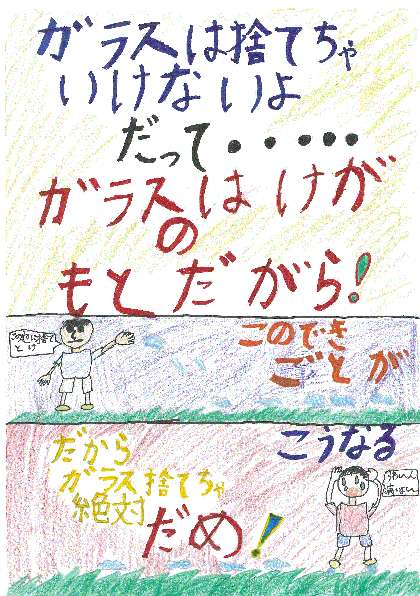 ガラスは捨てちゃ
いけないよ
だって・・・・・
ガラスはけが
の
もとだがら!
このでき
ごとが
こうなる
だから
ガラス捨てちゃ
絶対
だめ!